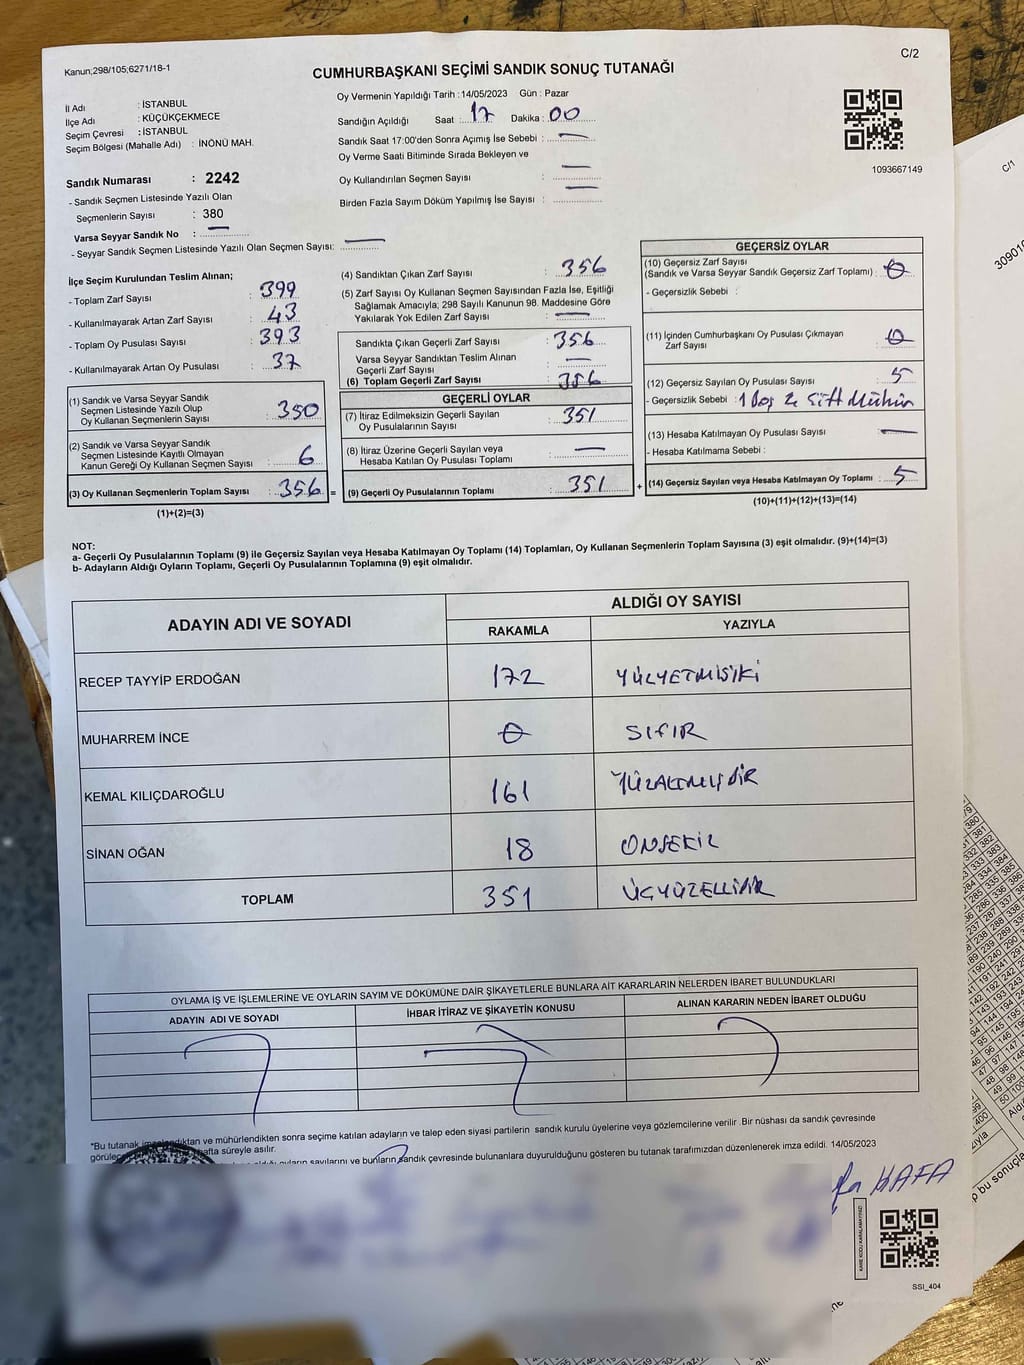 Kanun;298/105;6271/18-1
C/2
CUMHURBAŞKANI SEÇİMİ SANDIK SONUÇ TUTANAĞI
İl Adı : İSTANBUL
İlçe Adı : KÜÇÜKÇEKMECE
Seçim Çevresi : İSTANBUL
Seçim Bölgesi (Mahalle Adı) : İNÖNÜ MAH.
Oy Vermenin Yapıldığı Tarih : 14/05/2023 Gün : Pazar
Sandığın Açıldığı Saat : 17 Dakika : 00
Sandık Saat 17:00'den Sonra Açımış İse Sebebi : —
Oy Verme Saati Bitiminde Sırada Bekleyen ve
Oy Kullandırılan Seçmen Sayısı : —
Birden Fazla Sayım Döküm Yapılmış İse Sayısı : —
1093667149
Sandık Numarası : 2242
- Sandık Seçmen Listesinde Yazılı Olan
Seçmenlerin Sayısı : 380
Varsa Seyyar Sandık No : —
- Seyyar Sandık Seçmen Listesinde Yazılı Olan Seçmen Sayısı: —
İlçe Seçim Kurulundan Teslim Alınan;
- Toplam Zarf Sayısı : 399
- Kullanılmayarak Artan Zarf Sayısı : 43
- Toplam Oy Pusulası Sayısı : 393
- Kullanılmayarak Artan Oy Pusulası : 37
(1) Sandık ve Varsa Seyyar Sandık
Seçmen Listesinde Yazılı Olup
Oy Kullanan Seçmenlerin Sayısı : 350
(2) Sandık ve Varsa Seyyar Sandık
Seçmen Listesinde Kayıtlı Olmayan
Kanun Gereği Oy Kullanan Seçmen Sayısı : 6
(3) Oy Kullanan Seçmenlerin Toplam Sayısı : 356 =
(1)+(2)=(3)
(4) Sandıktan Çıkan Zarf Sayısı : 356
(5) Zarf Sayısı Oy Kullanan Seçmen Sayısından Fazla İse, Eşitliği
Sağlamak Amacıyla; 298 Sayılı Kanunun 98. Maddesine Göre
Yakılarak Yok Edilen Zarf Sayısı : —
Sandıkta Çıkan Geçerli Zarf Sayısı : 356
Varsa Seyyar Sandıktan Teslim Alınan
Geçerli Zarf Sayısı : —
(6) Toplam Geçerli Zarf Sayısı : 356
GEÇERLİ OYLAR
(7) İtiraz Edilmeksizin Geçerli Sayılan
Oy Pusulalarının Sayısı : 351
(8) İtiraz Üzerine Geçerli Sayılan veya
Hesaba Katılan Oy Pusulası Toplamı : —
(9) Geçerli Oy Pusulalarının Toplamı : 351 +
GEÇERSİZ OYLAR
(10) Geçersiz Zarf Sayısı
(Sandık ve Varsa Seyyar Sandık Geçersiz Zarf Toplamı) : 0
- Geçersizlik Sebebi :
(11) İçinden Cumhurbaşkanı Oy Pusulası Çıkmayan
Zarf Sayısı : 0
(12) Geçersiz Sayılan Oy Pusulası Sayısı : 5
- Geçersizlik Sebebi : 1 Boş Mühür
(13) Hesaba Katılmayan Oy Pusulası Sayısı : —
- Hesaba Katılmama Sebebi :
(14) Geçersiz Sayılan veya Hesaba Katılmayan Oy Toplamı : 5
(10)+(11)+(12)+(13)=(14)
NOT:
a- Geçerli Oy Pusulalarının Toplamı (9) ile Geçersiz Sayılan veya Hesaba Katılmayan Oy Toplamı (14) Toplamları, Oy Kullanan Seçmenlerin Toplam Sayısına (3) eşit olmalıdır. (9)+(14)=(3)
b- Adayların Aldığı Oyların Toplamı, Geçerli Oy Pusulalarının Toplamına (9) eşit olmalıdır.
ADAYIN ADI VE SOYADI ALDIĞI OY SAYISI
RAKAMLA YAZIYLA
RECEP TAYYİP ERDOĞAN 172 YÜZYETMİŞİKİ
MUHARREM İNCE 0 SIFIR
KEMAL KILIÇDAROĞLU 161 YÜZALTMIŞBİR
SİNAN OĞAN 18 ONSEKİZ
TOPLAM 351 ÜÇYÜZELLİBİR
OYLAMA İŞ VE İŞLEMLERİNE VE OYLARIN SAYIM VE DÖKÜMÜNE DAİR ŞİKAYETLERLE BUNLARA AİT KARARLARIN NELERDEN İBARET BULUNDUKLARI
ADAYIN ADI VE SOYADI İHBAR İTİRAZ VE ŞİKAYETİN KONUSU ALINAN KARARIN NEDEN İBARET OLDUĞU
*Bu tutanak imzalandıktan ve mühürlendikten sonra seçime katılan adayların ve talep eden siyasi partilerin sandık kurulu üyelerine veya gözlemcilerine verilir. Bir nüshası da sandık çevresinde
hafta süreyle asılır.
oyların sayılarını ve bunların sandık çevresinde bulunanlara duyurulduğunu gösteren bu tutanak tarafımızdan düzenlenerek imza edildi. 14/05/2023
KARE KODU KARALAMAYINIZ!
SSI_404
C/1